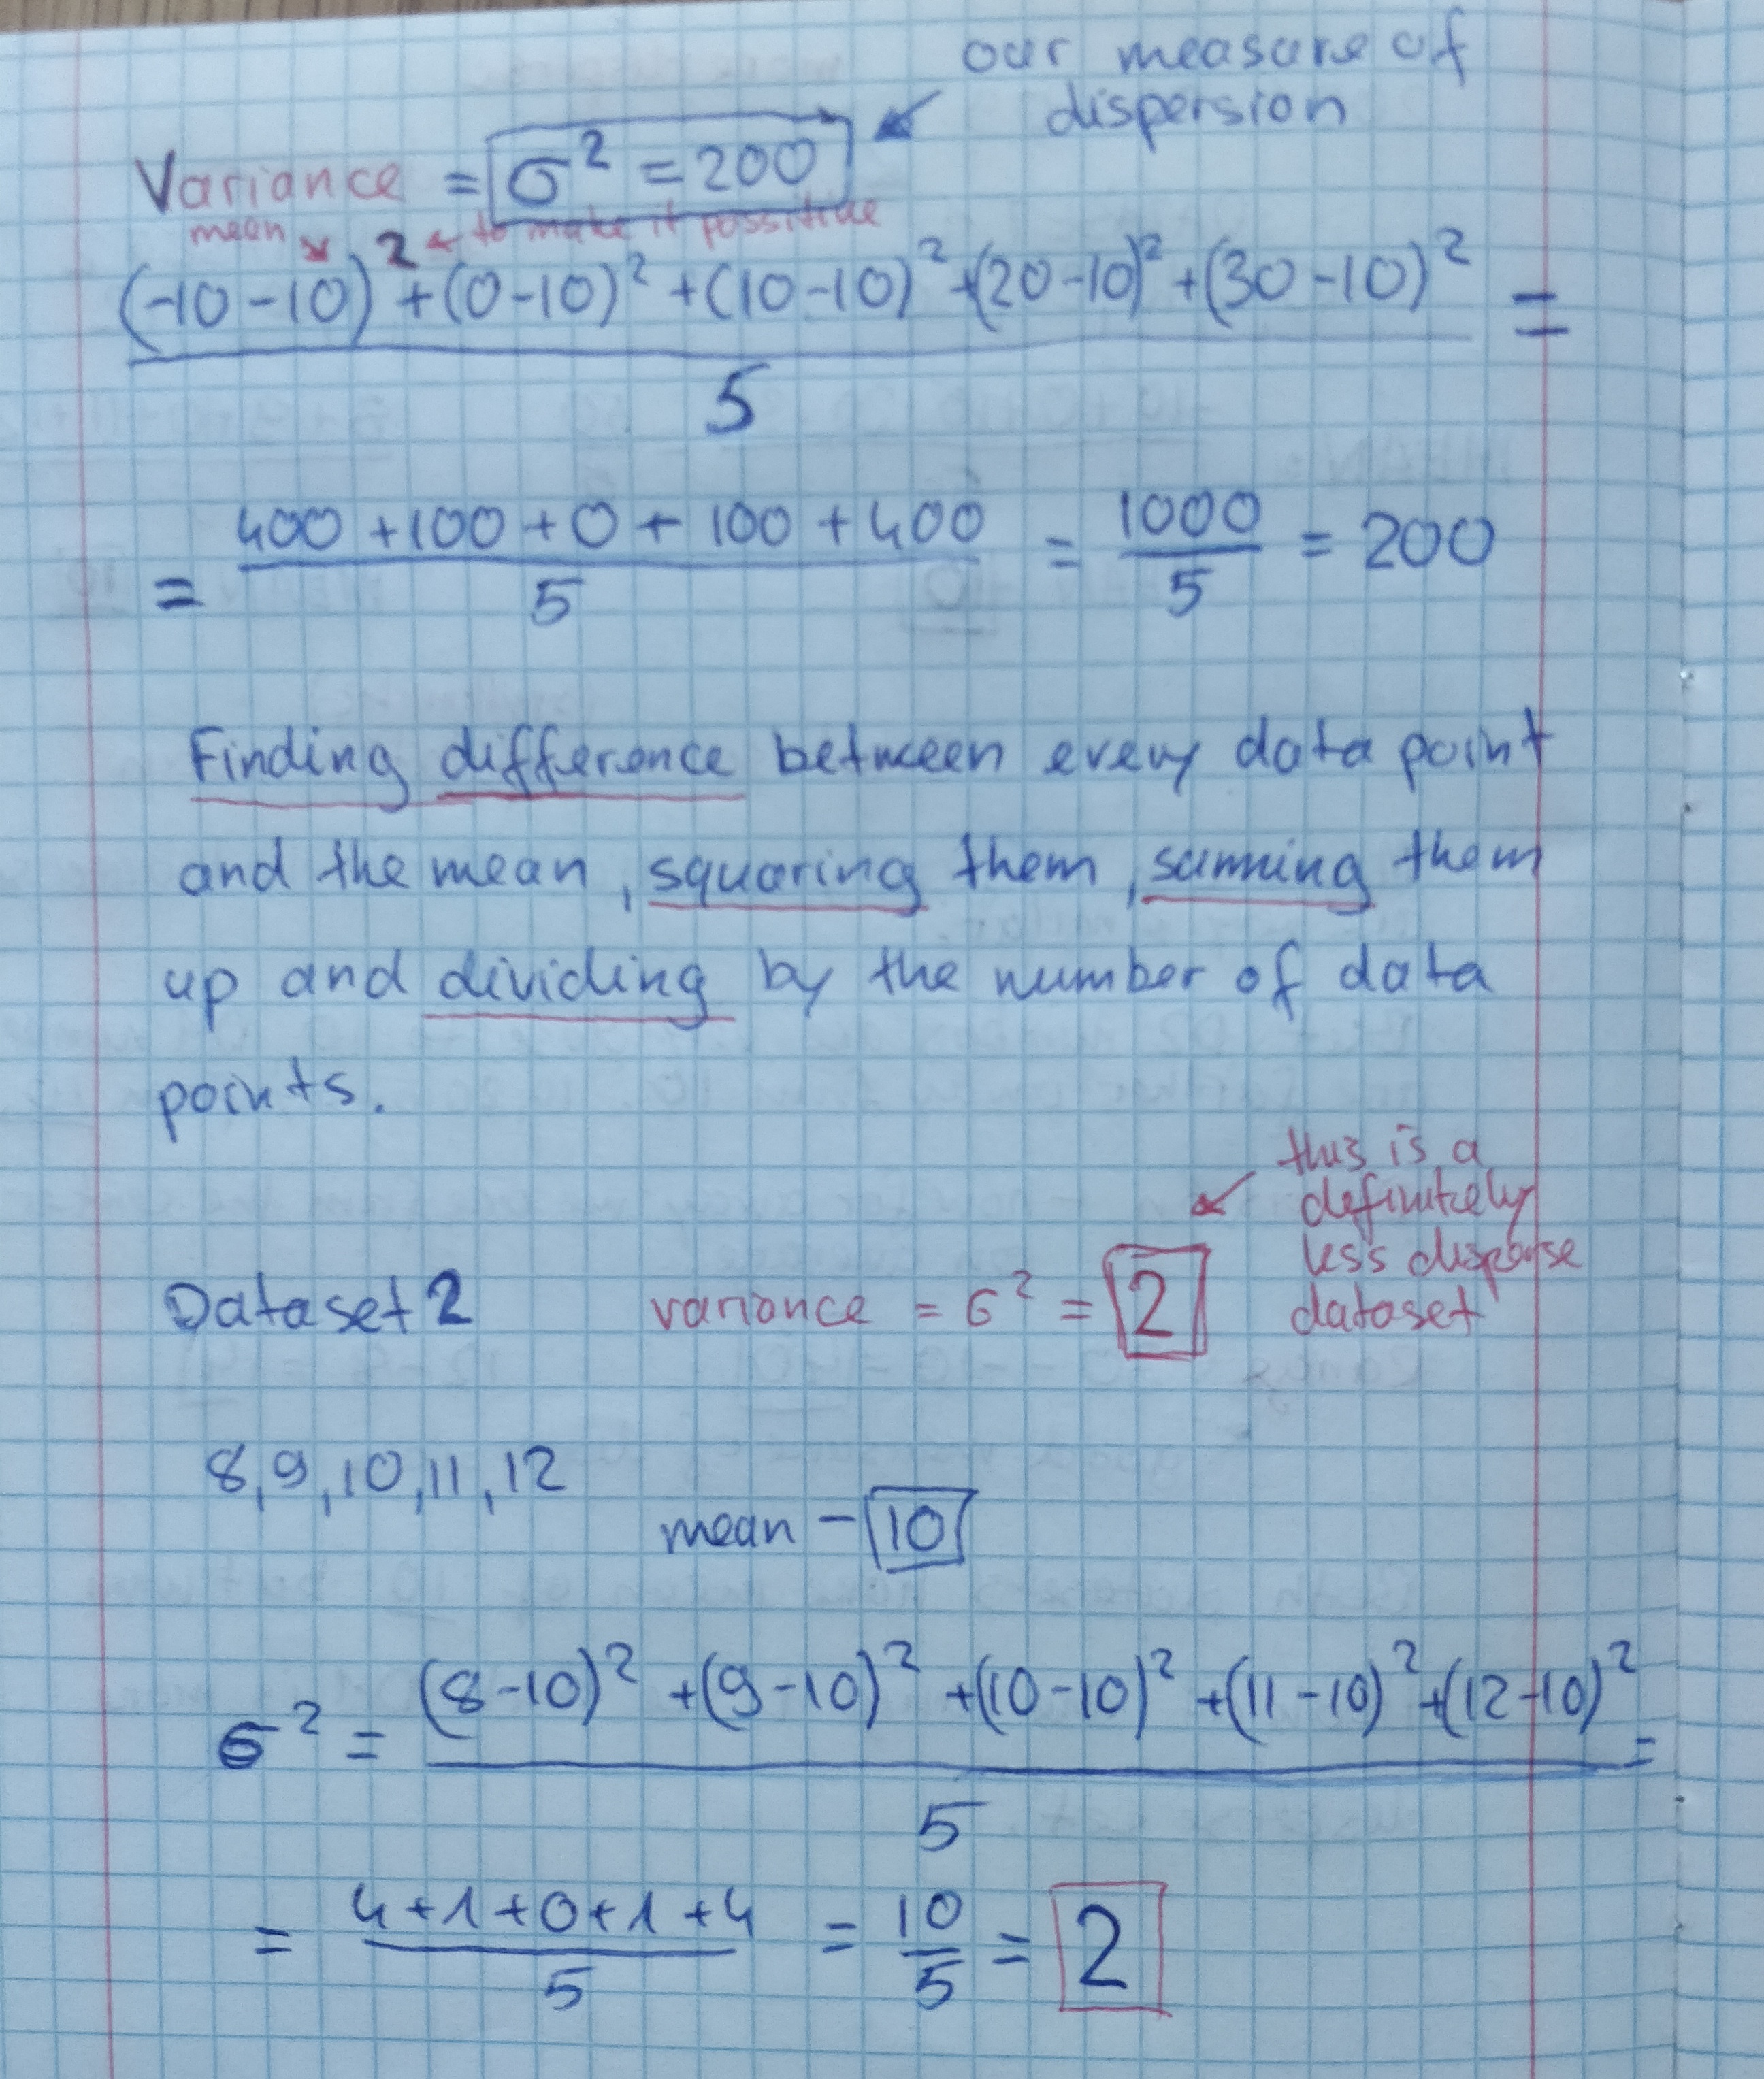 our measure of
dispersion
Variance = σ² = 200
mean 2 to make it possitive
(-10-10)² + (0-10)² + (10-10)² + (20-10)² + (30-10)² =
5
= 400 + 100 + 0 + 100 + 400 = 1000 = 200
5 5
Finding difference between every data point
and the mean, squaring them, summing them
up and dividing by the number of data
points.
this is a
definitely
less disperse
dataset
Dataset 2 variance = σ² = 2
8, 9, 10, 11, 12
mean - 10
σ² = (8-10)² + (9-10)² + (10-10)² + (11-10)² + (12-10)² =
5
= 4+1+0+1+4 = 10 = 2
5 5